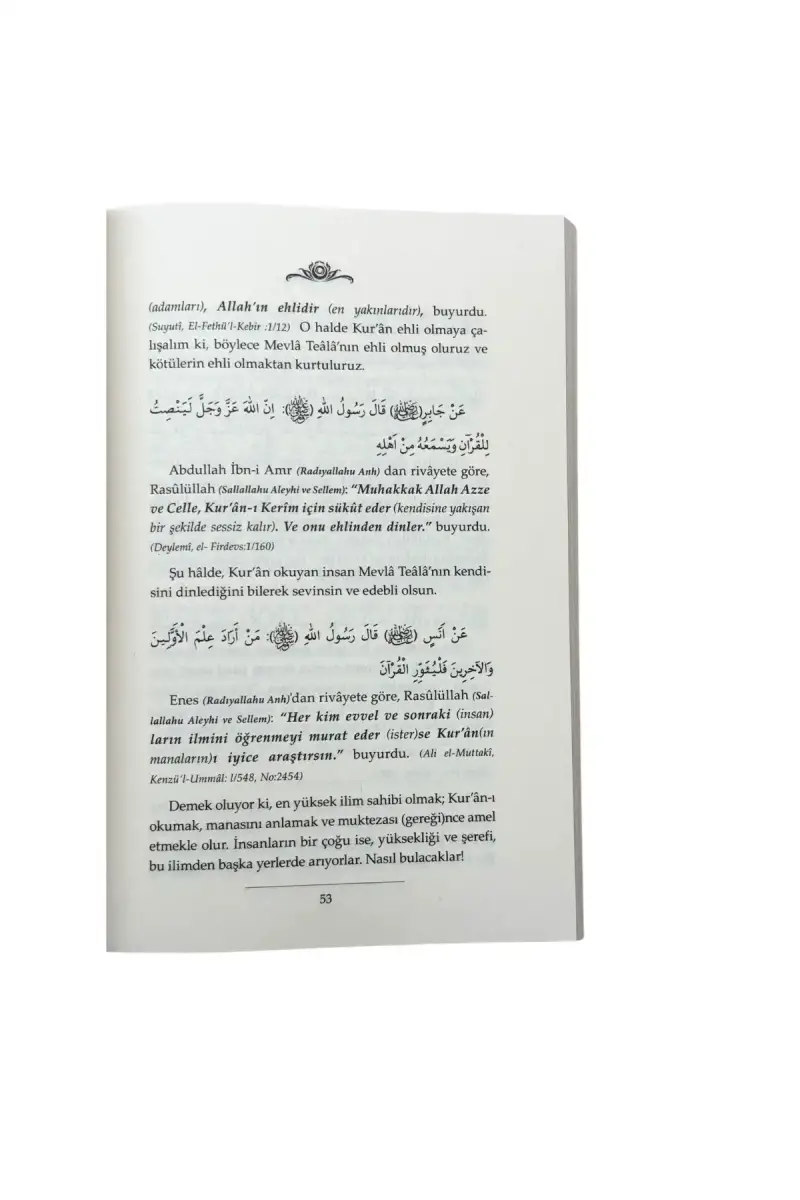 (adamları), Allah'ın ehlidir (en yakınlarıdır), buyurdu.
(Suyutî, El-Fethü'l-Kebir :1/12) O halde Kur'ân ehli olmaya ça-
lışalım ki, böylece Mevlâ Teâlâ'nın ehli olmuş oluruz ve
kötülerin ehli olmaktan kurtuluruz.
عَنْ جَابِرٍ(رضي الله عنه) قَالَ رَسُولُ اللهِ (ﷺ): اِنَّ اللهَ عَزَّ وَجَلَّ لَيَنْصِتُ
لِلْقُرْآنِ وَيَسْمَعُهُ مِنْ اَهْلِهِ
Abdullah İbn-i Amr (Radıyallahu Anh) dan rivâyete göre,
Rasûlüllah (Sallallahu Aleyhi ve Sellem): "Muhakkak Allah Azze
ve Celle, Kur'ân-ı Kerîm için sükût eder (kendisine yakışan
bir şekilde sessiz kalır). Ve onu ehlinden dinler." buyurdu.
(Deylemî, el- Firdevs:1/160)
Şu hâlde, Kur'ân okuyan insan Mevlâ Teâlâ'nın kendi-
sini dinlediğini bilerek sevinsin ve edebli olsun.
عَنْ اَنَسٍ (رضي الله عنه) قَالَ رَسُولُ اللهِ (ﷺ): مَنْ أَرَادَ عِلْمَ الْأَوَّلِينَ
وَالْآخِرِينَ فَلْيُثَوِّرِ الْقُرْآنَ
Enes (Radıyallahu Anh)'dan rivâyete göre, Rasûlüllah (Sal-
lallahu Aleyhi ve Sellem): "Her kim evvel ve sonraki (insan)
ların ilmini öğrenmeyi murat eder (ister)se Kur'ân(ın
manaların)ı iyice araştırsın." buyurdu. (Ali el-Muttakî,
Kenzü'l-Ummâl: l/548, No:2454)
Demek oluyor ki, en yüksek ilim sahibi olmak; Kur'ân-ı
okumak, manasını anlamak ve muktezası (gereği)nce amel
etmekle olur. İnsanların bir çoğu ise, yüksekliği ve şerefi,
bu ilimden başka yerlerde arıyorlar. Nasıl bulacaklar!
53